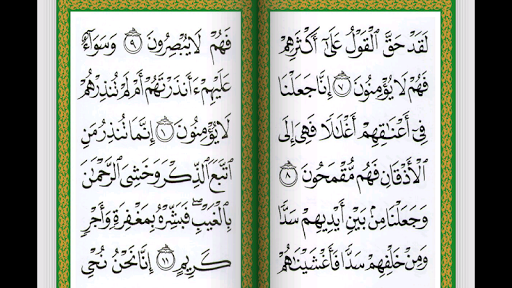 لَقَدْ حَقَّ ٱلْقَوْلُ عَلَىٰٓ أَكْثَرِهِمْ
فَهُمْ لَا يُؤْمِنُونَ ٧ إِنَّا جَعَلْنَا
فِىٓ أَعْنَـٰقِهِمْ أَغْلَـٰلًا فَهِىَ إِلَى
ٱلْأَذْقَانِ فَهُم مُّقْمَحُونَ ٨
وَجَعَلْنَا مِنۢ بَيْنِ أَيْدِيهِمْ سَدًّا
وَمِنْ خَلْفِهِمْ سَدًّا فَأَغْشَيْنَـٰهُمْ
فَهُمْ لَا يُبْصِرُونَ ٩ وَسَوَآءٌ
عَلَيْهِمْ ءَأَنذَرْتَهُمْ أَمْ لَمْ تُنذِرْهُمْ
لَا يُؤْمِنُونَ ١٠ إِنَّمَا تُنذِرُ مَنِ
ٱتَّبَعَ ٱلذِّكْرَ وَخَشِىَ ٱلرَّحْمَـٰنَ
بِٱلْغَيْبِ ۖ فَبَشِّرْهُ بِمَغْفِرَةٍ وَأَجْرٍ
كَرِيمٍ ١١ إِنَّا نَحْنُ نُحْىِ